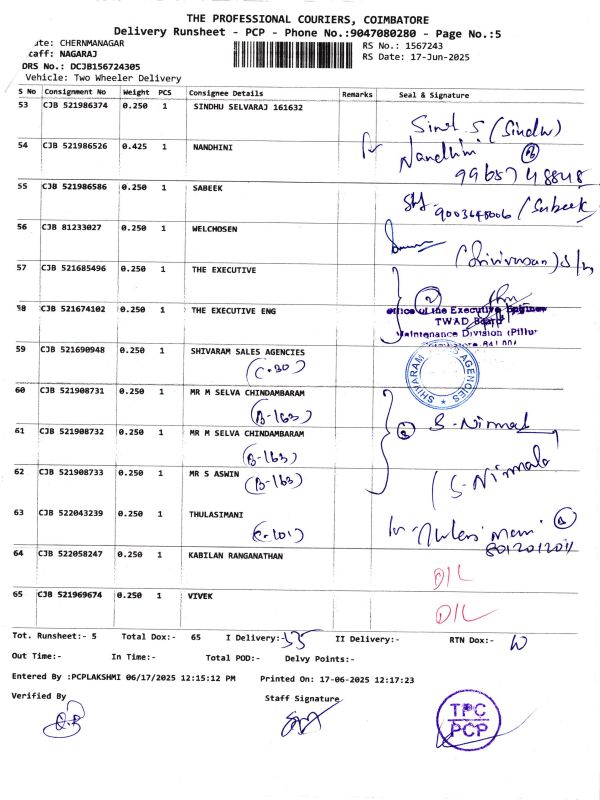 THE PROFESSIONAL COURIERS, COIMBATORE
Delivery Runsheet - PCP - Phone No.:9047080280 - Page No.:5
ute: CHERNMANAGAR
RS No.: 1567243
caff: NAGARAJ
RS Date: 17-Jun-2025
DRS No.: DCJB156724305
Vehicle: Two Wheeler Delivery
S No Consignment No Weight PCS Consignee Details Remarks Seal & Signature
53 CJB 521986374 0.250 1 SINDHU SELVARAJ 161632
(Sindu)
54 CJB 521986526 0.425 1 NANDHINI
Nandhini
9965748848
55 CJB 521986586 0.250 1 SABEEK
9003645006 / Sabeek
56 CJB 81233027 0.250 1 WELCHOSEN
(Srinivasan) S/
57 CJB 521685496 0.250 1 THE EXECUTIVE
2
58 CJB 521674102 0.250 1 THE EXECUTIVE ENG
office of the Executive Engineer
TWAD Board
Maintenance Division (Pillur
59 CJB 521690948 0.250 1 SHIVARAM SALES AGENCIES
(C-30)
SHIVARAM SALES AGENCIES
60 CJB 521908731 0.250 1 MR M SELVA CHINDAMBARAM
(B-163)
S-Nirmal
61 CJB 521908732 0.250 1 MR M SELVA CHINDAMBARAM
(B-163)
62 CJB 521908733 0.250 1 MR S ASWIN
(B-163)
(S-Nirmala
63 CJB 522043239 0.250 1 THULASIMANI
(C-101)
8012012011
64 CJB 522058247 0.250 1 KABILAN RANGANATHAN
D/L
65 CJB 521969674 0.250 1 VIVEK
D/L
Tot. Runsheet:- 5 Total Dox:- 65 I Delivery:- 55 II Delivery:- RTN Dox:- 10
Out Time:- In Time:- Total POD:- Delvy Points:-
Entered By :PCPLAKSHMI 06/17/2025 12:15:12 PM Printed On: 17-06-2025 12:17:23
Verified By Staff Signature
TPC
PCP